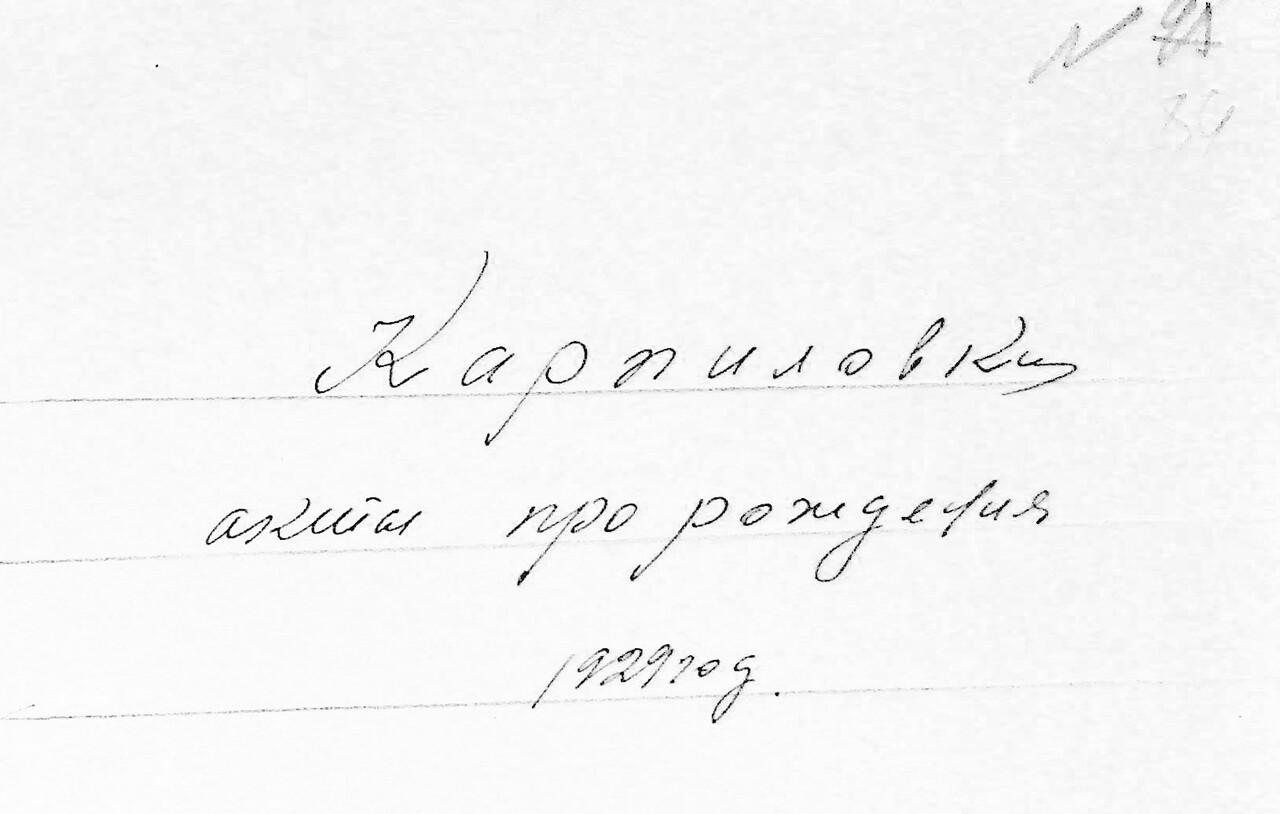 Карпиловка
акты про рождения
1929 год.